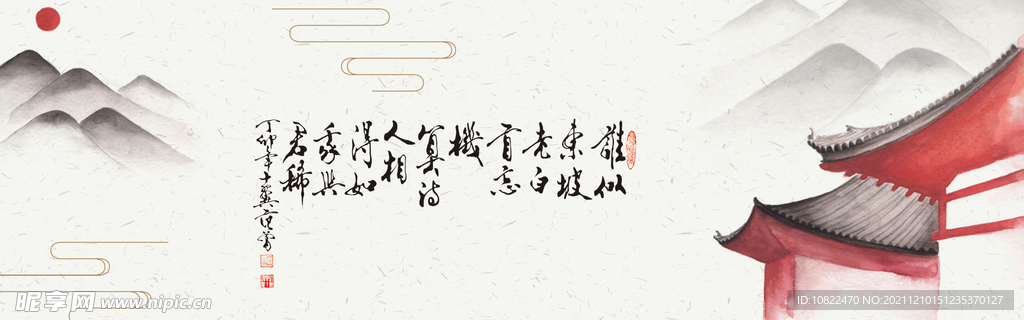 誰似
東坡
老白
首忘
機
算詩
人相
得如
我與
君稀
丁卯年十翼范曾
昵享网 www.nipic.cn
ID:10822470 NO:20211210151235370127